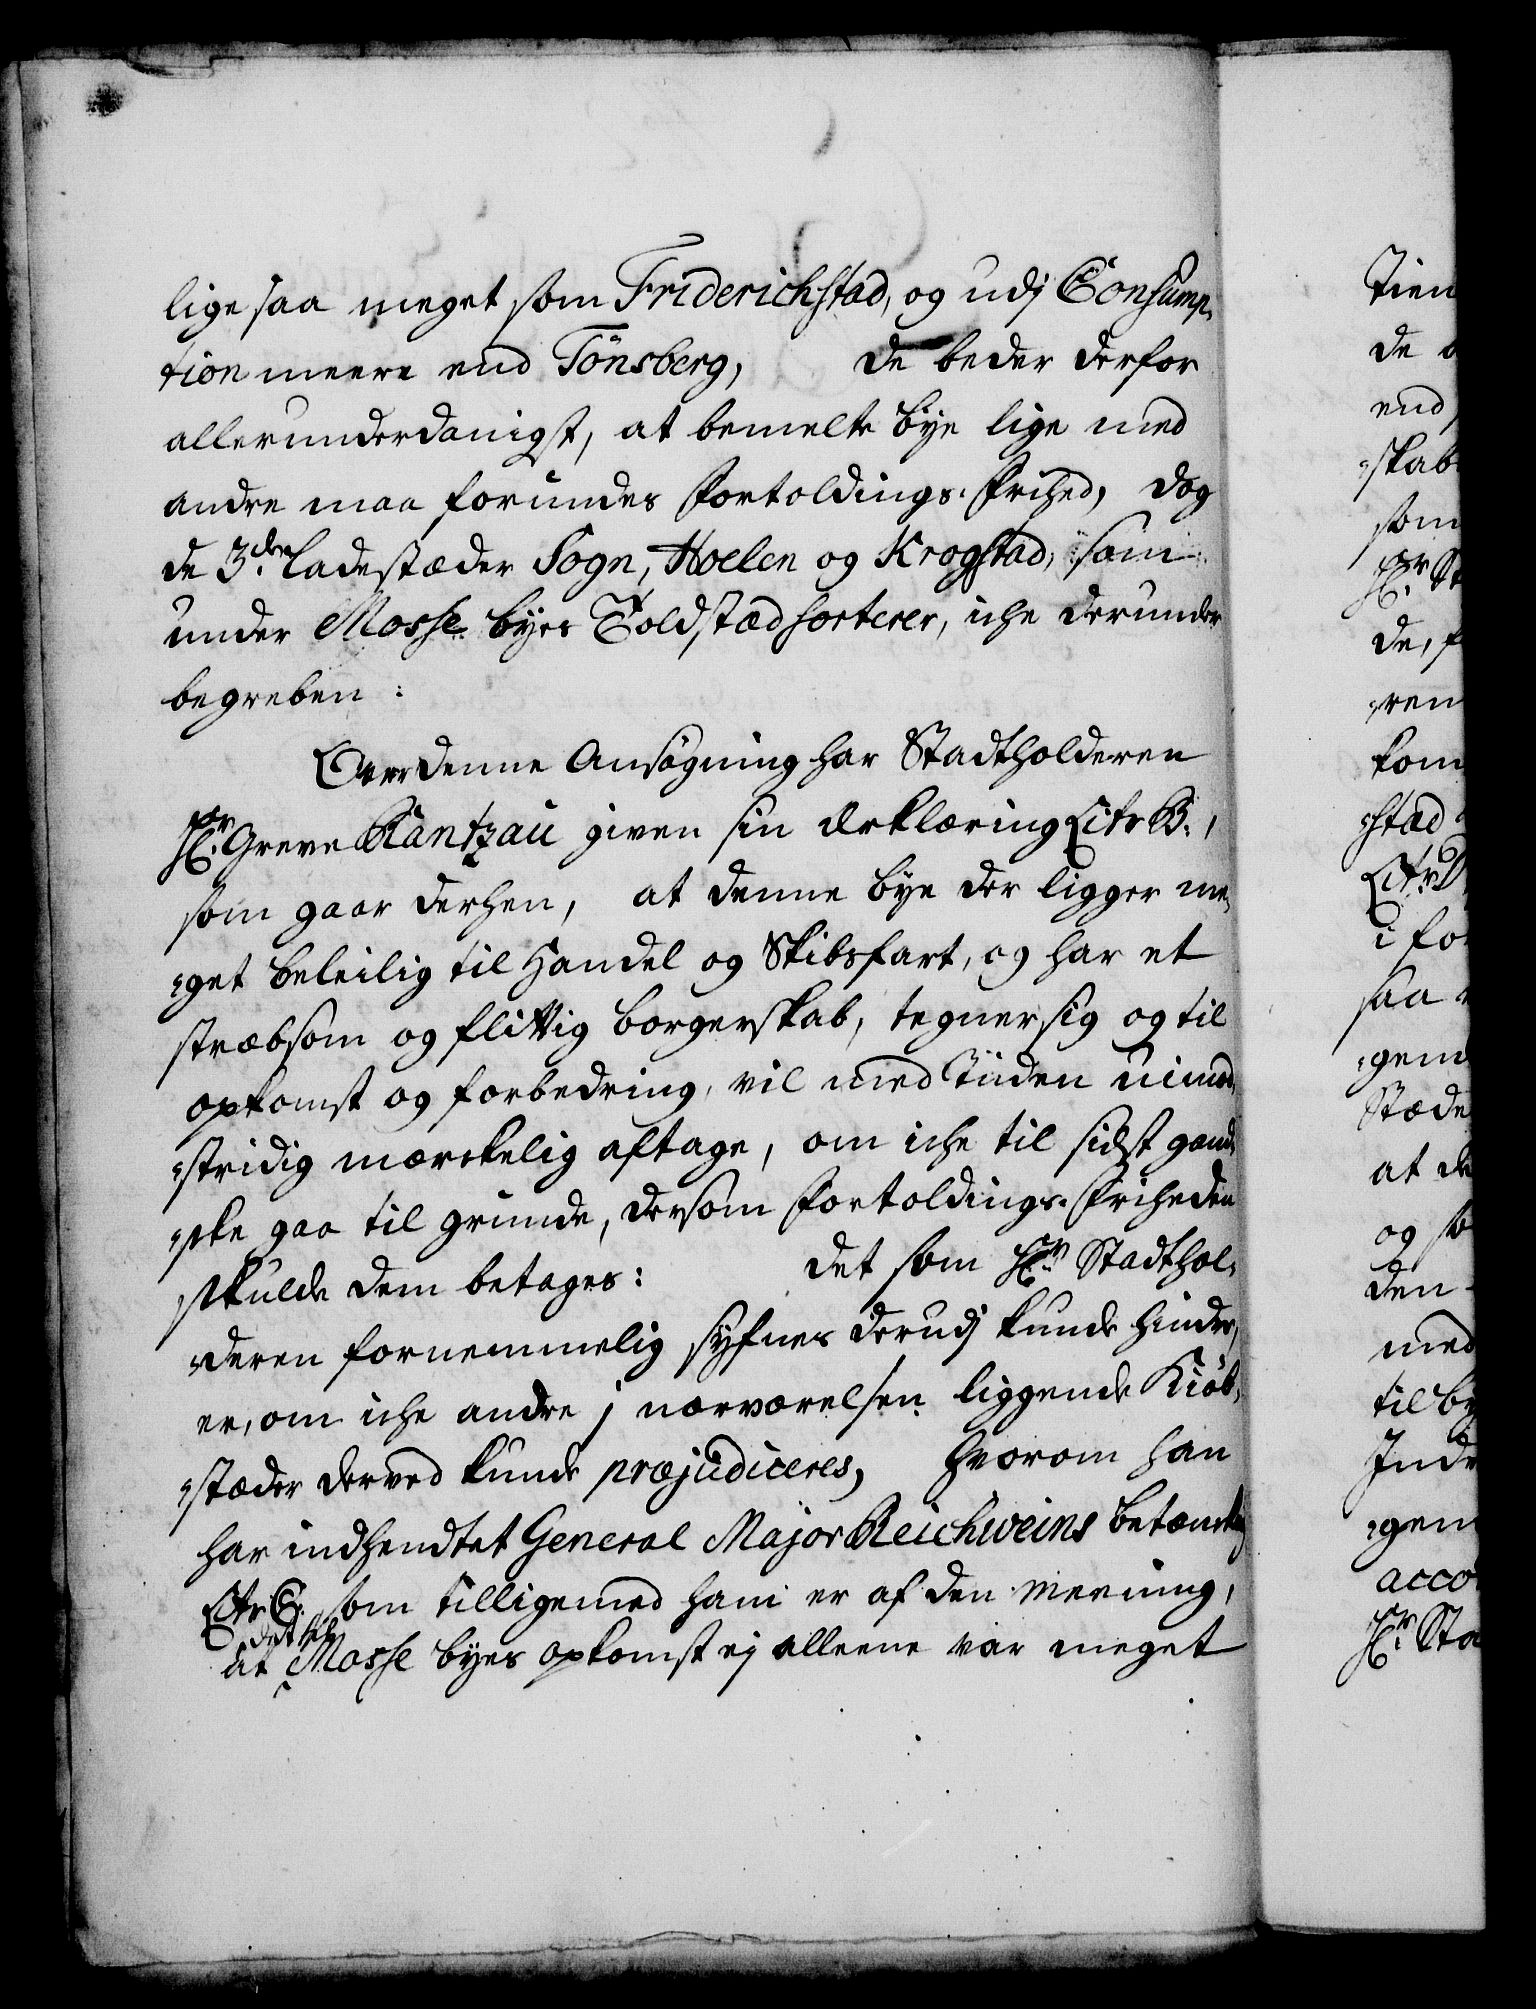 lige saa meget som Friderichstad, og udj Consump-
tion meere end Tönsberg, de beder derfor
allerunderdanigst, at bemelte bye lige med
andre maa forundes fortoldings-frihed, dog
de 3de Ladestæder Sogn, Hoelen og Krogstad, som
under Mosse byes Toldstæd sorterer, iche derunder
begreben:
Over denne Ansøgning har Stadtholderen
Hr. Greve Rantzau given sin Erklæring Litr B.,
som gaar derhen, at denne bye der ligger me-
get beleilig til Handel og Skibsfart, og har et
stræbsom og flittig borgerskab, tegner sig og til
opkomst og forbedring, vil med Tiiden uimod-
stridig mærckelig aftage, om iche til sidst gand-
ske gaa til grunde, dersom fortoldings-friheden
skulde dem betages: det som Hr. Stadthol-
deren fornemmelig syfnes derudj kunde hindre,
er, om iche andre j nærværelsen liggende Kiöb-
stæder derved kunde præjudiceres, hvorom han
har indhendtet General Major Reichweins betænck
Litr C. som tilligemed ham er af den Meening,
at Mosse byes opkomst ej alleene var meget
Tien
de
end
skab
som
Hr. St
de, f
ren
kom
stad
Litr D
i for
saa
gem
Stæde
at de
og so
den
med
til by
Inde
gem
acco
Hr. Sta